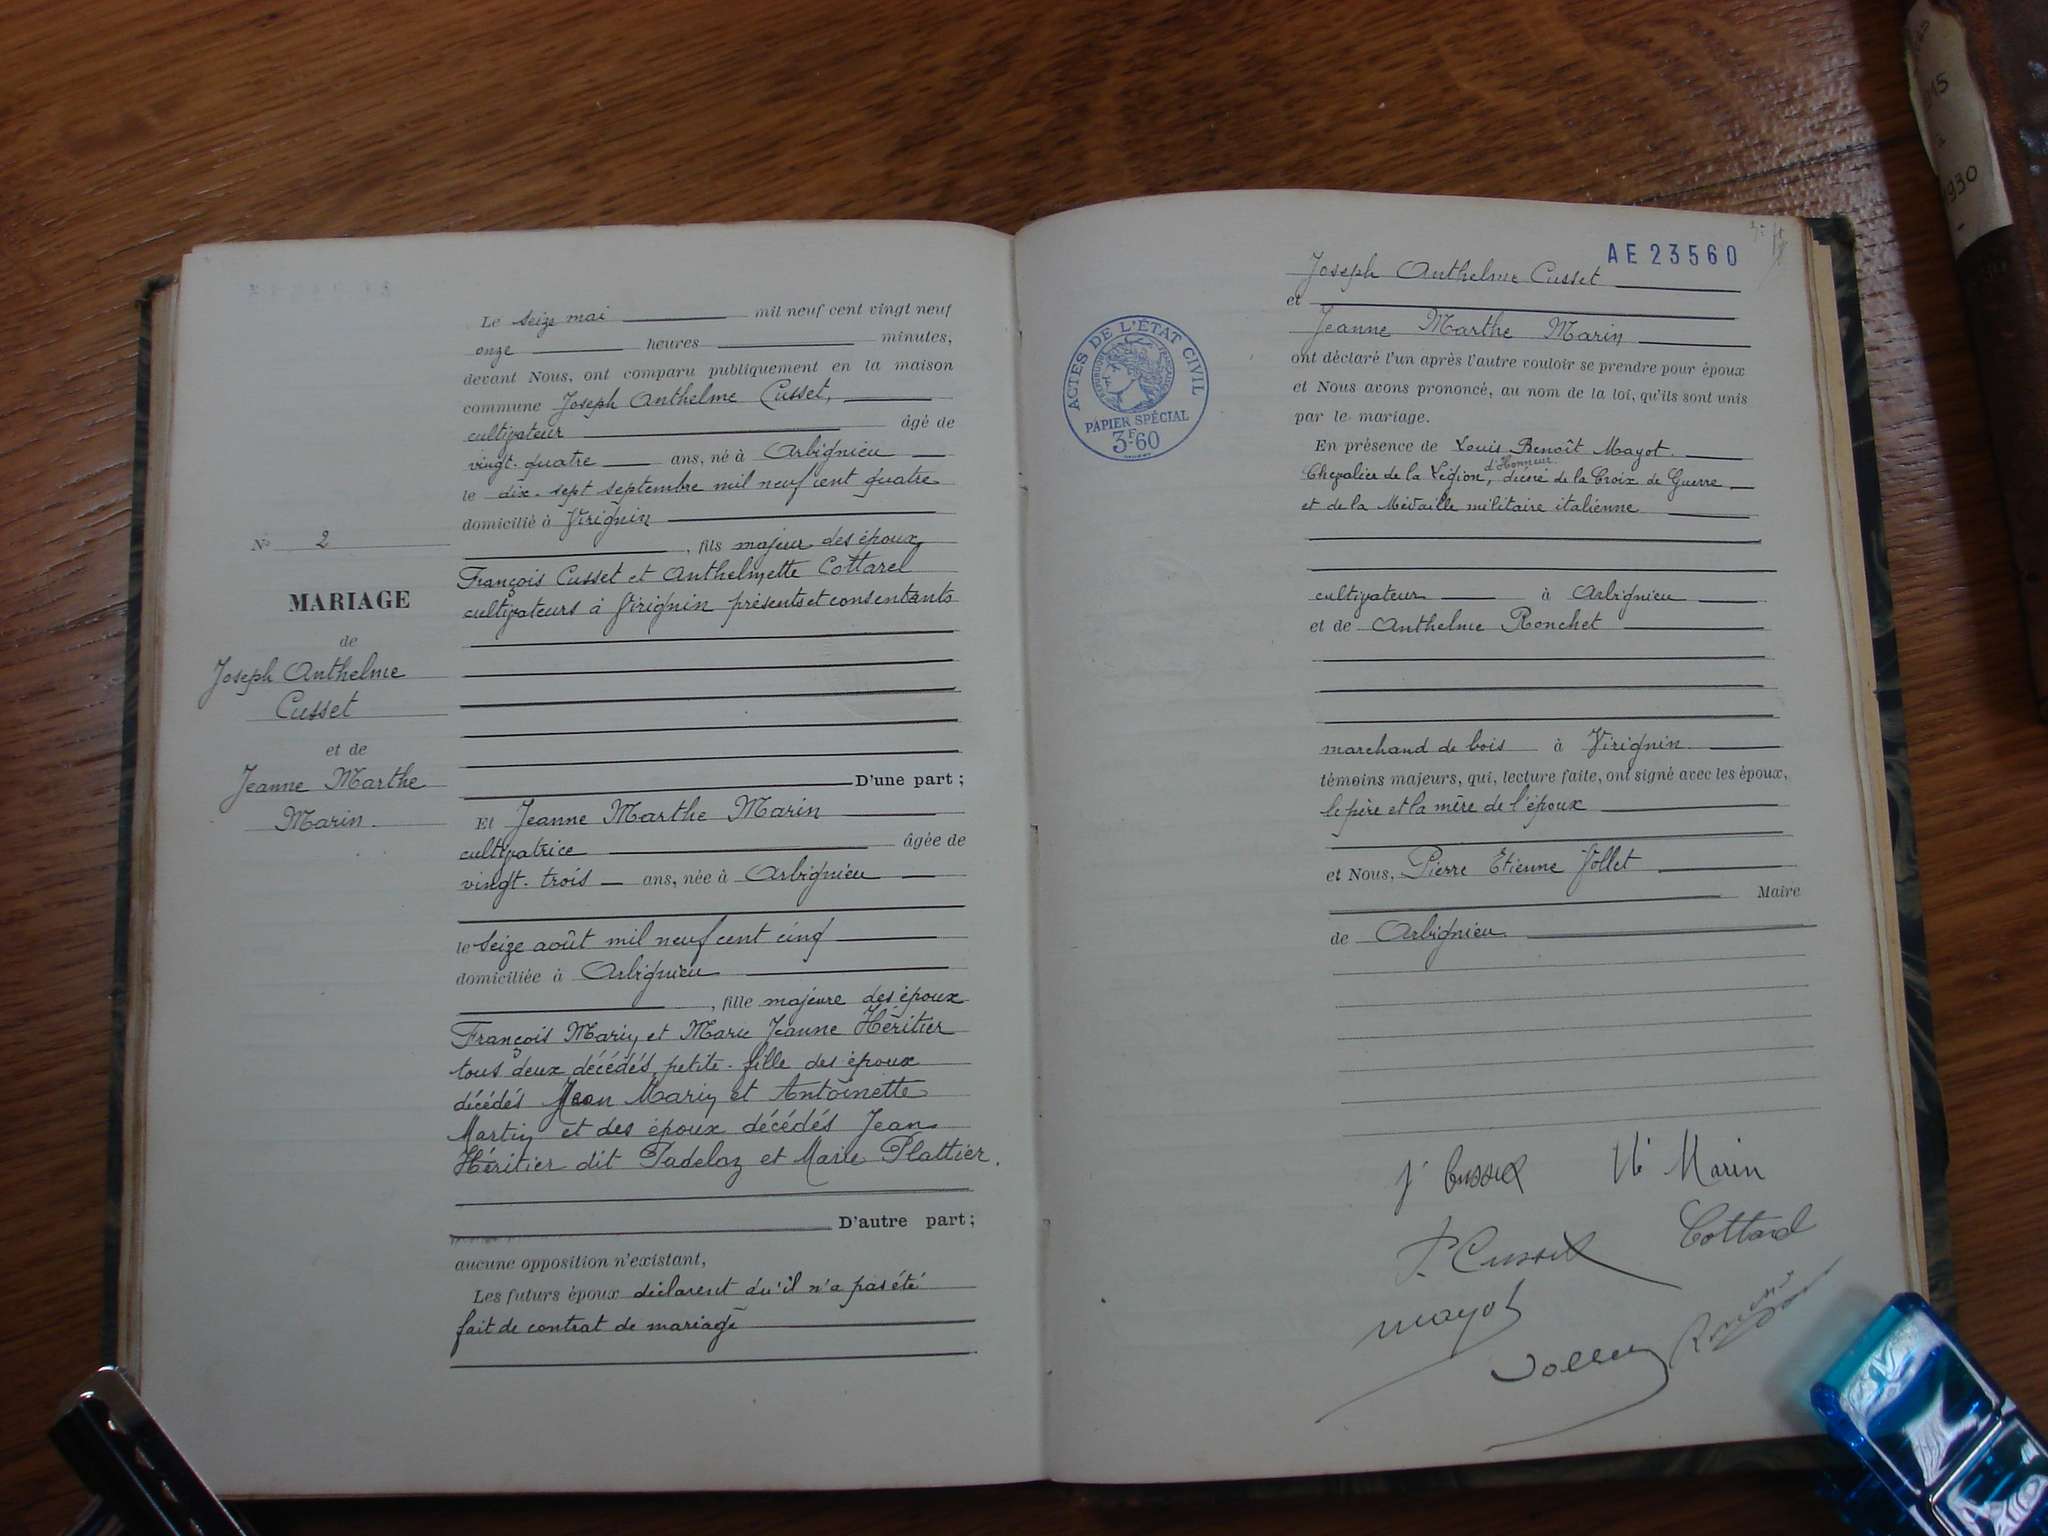 Le seize mai mil neuf cent vingt neuf
onze heures minutes,
devant Nous, ont comparu publiquement en la maison
commune Joseph Anthelme Cusset,
cultivateur âgé de
vingt-quatre ans, né à Arbignieu
le dix-sept septembre mil neuf cent quatre
domicilié à Virignin
, fils majeur des époux
François Cusset et Anthelmette Cottarel
cultivateurs à Virignin présents et consentants
N° 2
MARIAGE
de
Joseph Anthelme
Cusset
et de
Jeanne Marthe
Marin
D'une part ;
Et Jeanne Marthe Marin
cultivatrice âgée de
vingt-trois ans, née à Arbignieu
le seize août mil neuf cent cinq
domiciliée à Arbignieu
, fille majeure des époux
François Marin et Marie Jeanne Héritier
tous deux décédés, petite-fille des époux
décédés Jean Marin et Antoinette
Martin et des époux décédés Jean
Héritier dit Padeloz et Marie Plattier.
D'autre part ;
aucune opposition n'existant,
Les futurs époux déclarent qu'il n'a pas été
fait de contrat de mariage
AE 23560
Joseph Anthelme Cusset
et
Jeanne Marthe Marin
ACTES DE L'ÉTAT CIVIL
RÉPUBLIQUE FRANÇAISE
PAPIER SPÉCIAL
3F60
ont déclaré l'un après l'autre vouloir se prendre pour époux
et Nous avons prononcé, au nom de la loi, qu'ils sont unis
par le mariage.
En présence de Louis Benoît Mayot
Chevalier de la Légion d'Honneur, décoré de la Croix de Guerre
et de la Médaille militaire italienne
cultivateur à Arbignieu
et de Anthelme Ronchet
marchand de bois à Virignin
témoins majeurs, qui, lecture faite, ont signé avec les époux,
le père et la mère de l'époux
et Nous, Pierre Etienne Jollet
Maire
de Arbignieu
J Cusset Marin
F. Cusset Cottard
Mayot
1930